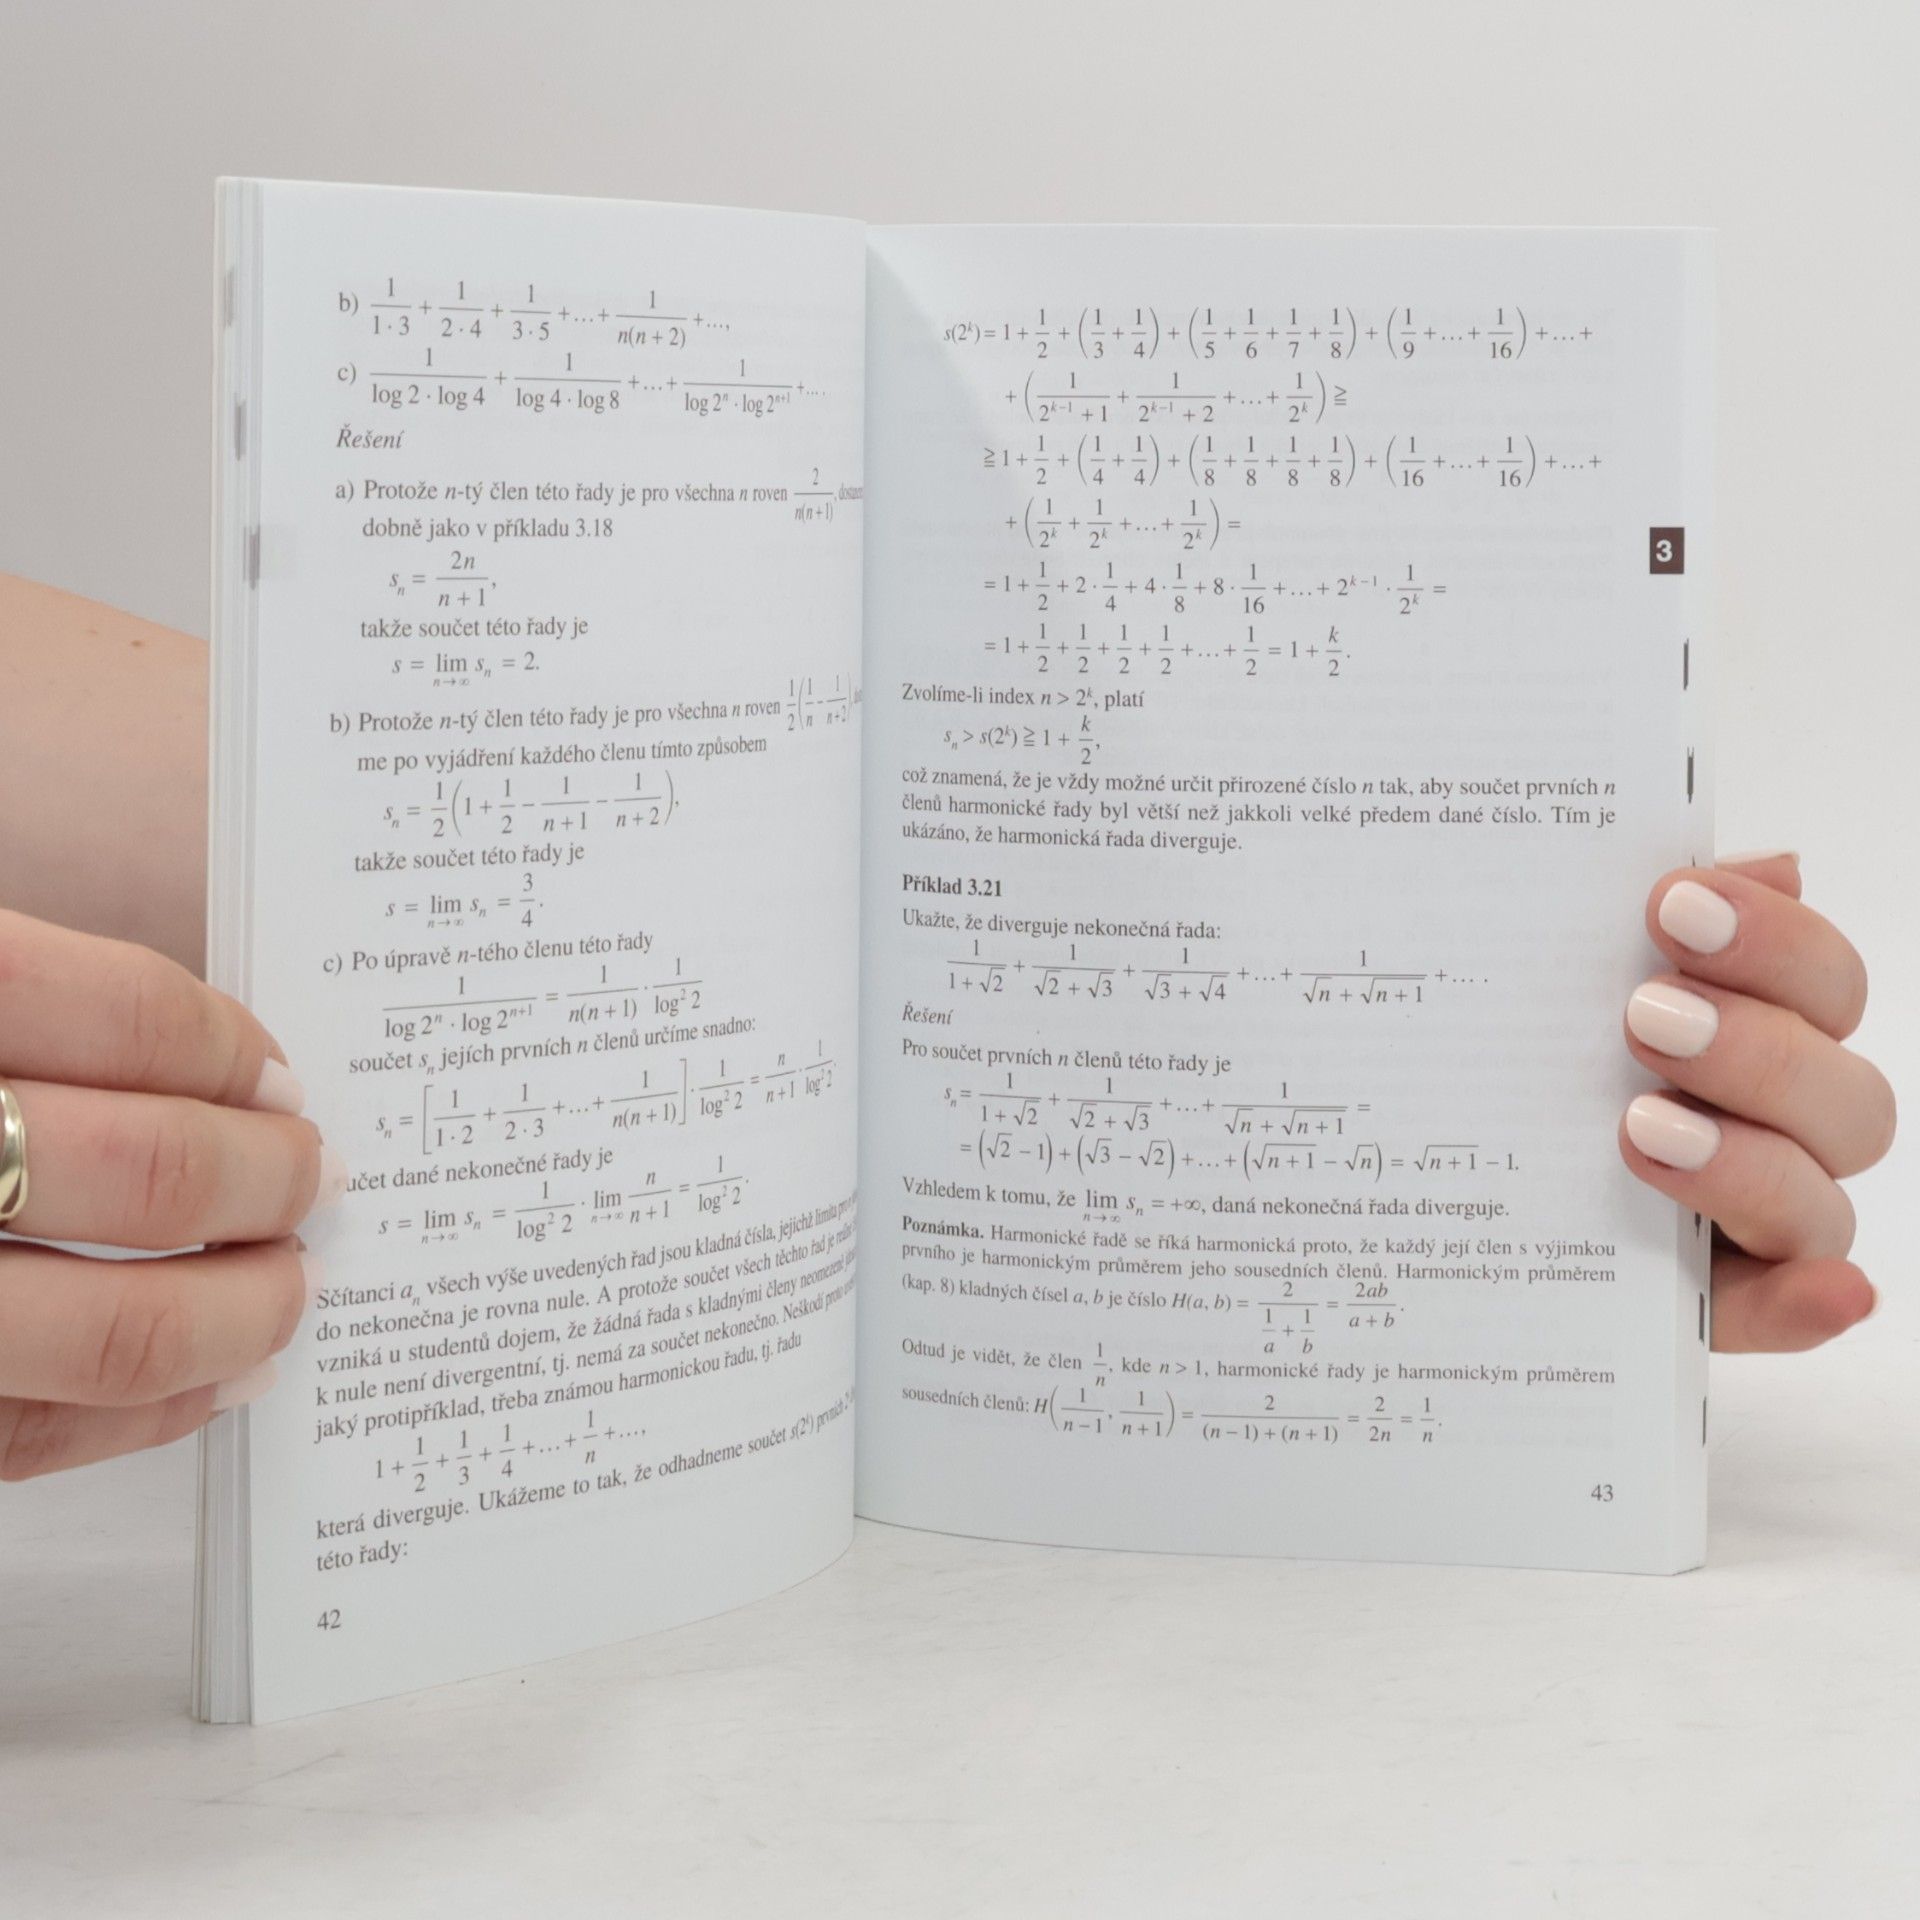 b) 1/(1 · 3) + 1/(2 · 4) + 1/(3 · 5) +…+ 1/(n(n + 2)) +…,
c) 1/(log 2 · log 4) + 1/(log 4 · log 8) +…+ 1/(log 2ⁿ · log 2ⁿ⁺¹) +… .
Řešení
a) Protože n-tý člen této řady je pro všechna n roven 2/(n(n+1)),
dobně jako v příkladu 3.18
sₙ = 2n/(n + 1),
takže součet této řady je
s = lim_{n→∞} sₙ = 2.
b) Protože n-tý člen této řady je pro všechna n roven 1/2 (1/n − 1/(n+2)),
me po vyjádření každého členu tímto způsobem
sₙ = 1/2 (1 + 1/2 − 1/(n + 1) − 1/(n + 2)),
takže součet této řady je
s = lim_{n→∞} sₙ = 3/4.
c) Po úpravě n-tého členu této řady
1/(log 2ⁿ · log 2ⁿ⁺¹) = 1/(n(n + 1)) · 1/(log² 2)
součet sₙ jejích prvních n členů určíme snadno:
sₙ = [1/(1 · 2) + 1/(2 · 3) +…+ 1/(n(n + 1))] · 1/(log² 2) = n/(n+1) · 1/(log² 2).
učet dané nekonečné řady je
s = lim_{n→∞} sₙ = 1/(log² 2) · lim_{n→∞} n/(n + 1) = 1/(log² 2).
Sčítanci aₙ všech výše uvedených řad jsou kladná čísla, jejichž limita pro n
do nekonečna je rovna nule. A protože součet všech těchto řad je
vzniká u studentů dojem, že žádná řada s kladnými členy neomezeně
k nule není divergentní, tj. nemá za součet nekonečno. Neškodí proto
jaký protipříklad, třeba známou harmonickou řadu, tj. řadu
1 + 1/2 + 1/3 + 1/4 +…+ 1/n +…,
která diverguje. Ukážeme to tak, že odhadneme součet s(2ᵏ) prvních 2ᵏ
této řady:
42
s(2ᵏ) = 1 + 1/2 + (1/3 + 1/4) + (1/5 + 1/6 + 1/7 + 1/8) + (1/9 +…+ 1/16) +…+
+ (1/(2ᵏ⁻¹ + 1) + 1/(2ᵏ⁻¹ + 2) +…+ 1/2ᵏ) ≧
≧ 1 + 1/2 + (1/4 + 1/4) + (1/8 + 1/8 + 1/8 + 1/8) + (1/16 +…+ 1/16) +…+
+ (1/2ᵏ + 1/2ᵏ +…+ 1/2ᵏ) =
= 1 + 1/2 + 2 · 1/4 + 4 · 1/8 + 8 · 1/16 +…+ 2ᵏ⁻¹ · 1/2ᵏ =
= 1 + 1/2 + 1/2 + 1/2 + 1/2 +…+ 1/2 = 1 + k/2.
Zvolíme-li index n > 2ᵏ, platí
sₙ > s(2ᵏ) ≧ 1 + k/2,
což znamená, že je vždy možné určit přirozené číslo n tak, aby součet prvních n
členů harmonické řady byl větší než jakkoli velké předem dané číslo. Tím je
ukázáno, že harmonická řada diverguje.
3
Příklad 3.21
Ukažte, že diverguje nekonečná řada:
1/(1 + √2) + 1/(√2 + √3) + 1/(√3 + √4) +…+ 1/(√n + √(n + 1)) +… .
Řešení
Pro součet prvních n členů této řady je
sₙ = 1/(1 + √2) + 1/(√2 + √3) +…+ 1/(√n + √(n + 1)) =
= (√2 − 1) + (√3 − √2) +…+ (√(n + 1) − √n) = √(n + 1) − 1.
Vzhledem k tomu, že lim_{n→∞} sₙ = +∞, daná nekonečná řada diverguje.
Poznámka. Harmonické řadě se říká harmonická proto, že každý její člen s výjimkou
prvního je harmonickým průměrem jeho sousedních členů. Harmonickým průměrem
(kap. 8) kladných čísel a, b je číslo H(a, b) = 2/(1/a + 1/b) = 2ab/(a + b).
Odtud je vidět, že člen 1/n, kde n > 1, harmonické řady je harmonickým průměrem
sousedních členů: H(1/(n − 1), 1/(n + 1)) = 2/((n − 1) + (n + 1)) = 2/2n = 1/n.
43